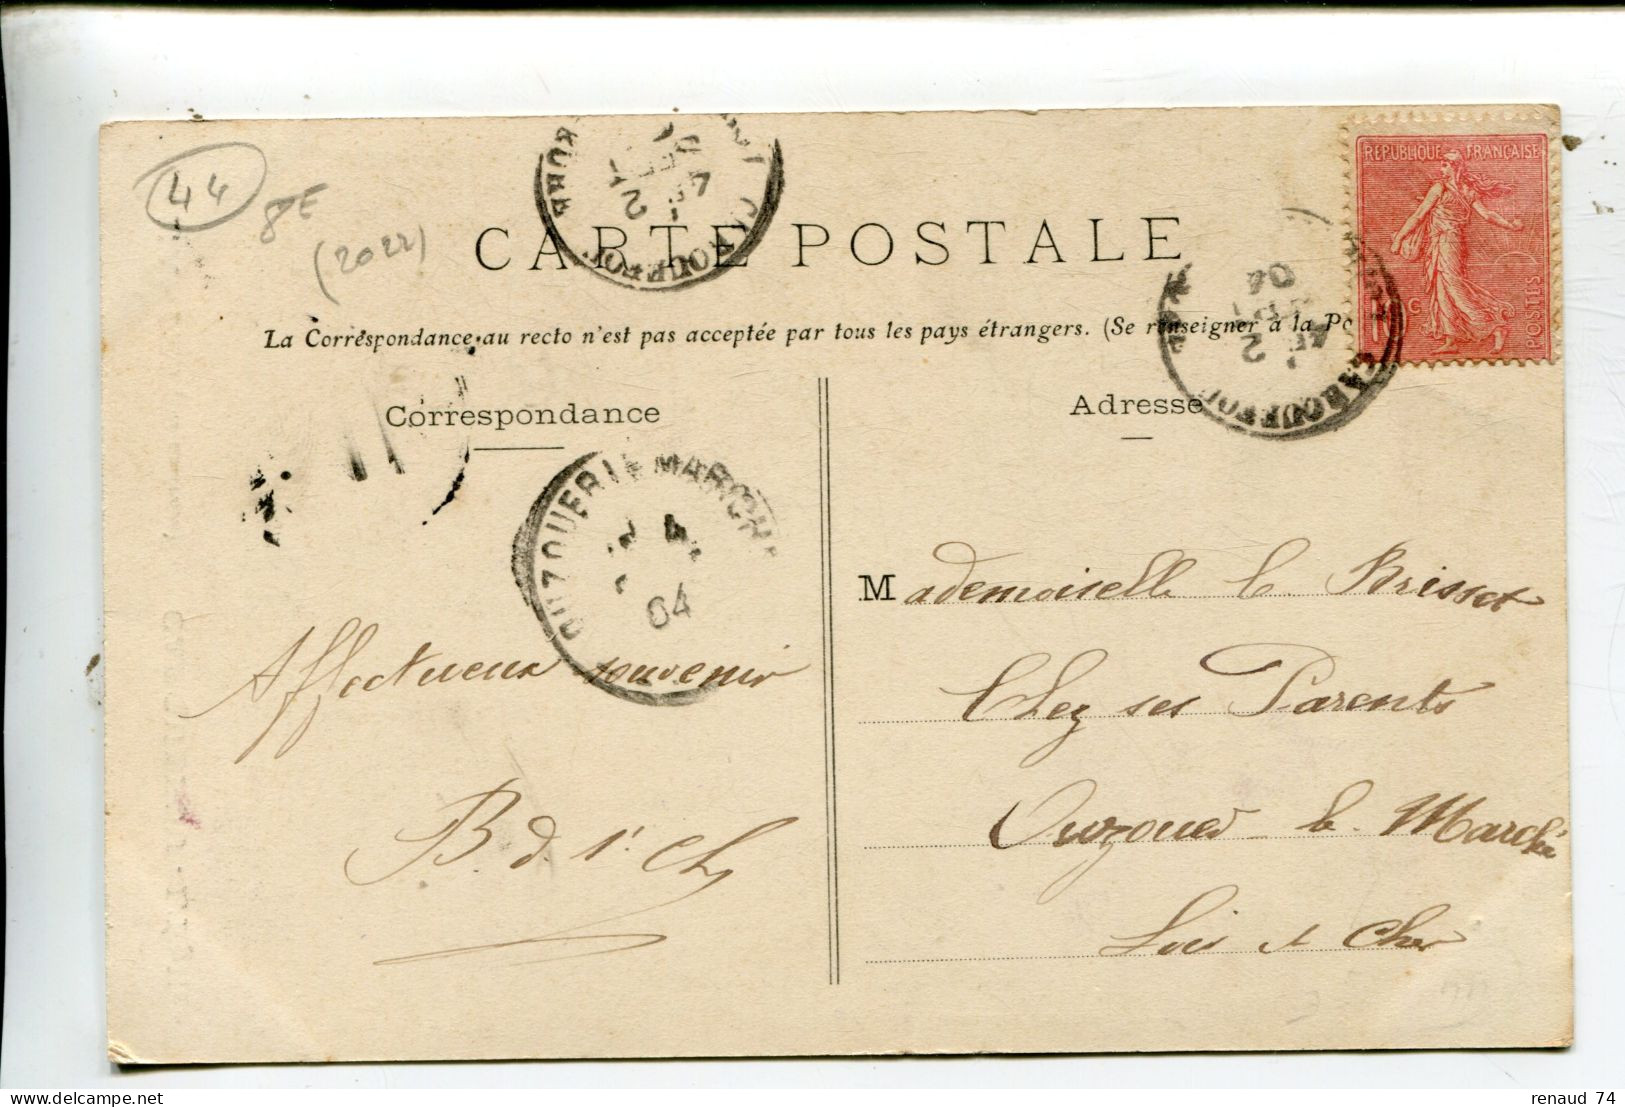 44
8E
(2022)
CARTE POSTALE
La Correspondance au recto n'est pas acceptée par tous les pays étrangers. (Se renseigner à la Po
REPUBLIQUE FRANÇAISE
POSTES
10 c
CARQUEFOU
2
04
CARQUEFOU
2
04
Correspondance
Adresse
OUZOUER LE MARCH
4
04
Mademoiselle C. Brisset
Chez ses Parents
Ouzouer le Marché
Loir et Cher
Affectueux souvenir
B. d. l'. Ch
delcampe.net
renaud 74